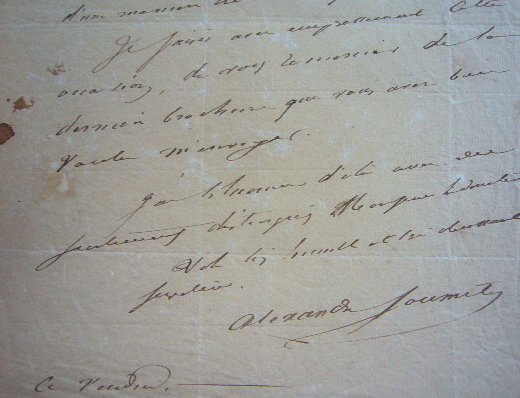 d'une manière
Je saisis avec empressement cette
occasion, de vous remercier de la
dernière brochure que vous avez bien
voulu m'envoyer.
J'ai l'honneur d'être avec des
sentiments distingués Monsieur
Votre très humble et très dévoué
serviteur.
Alexandre Soumet
Ce Vendredi.